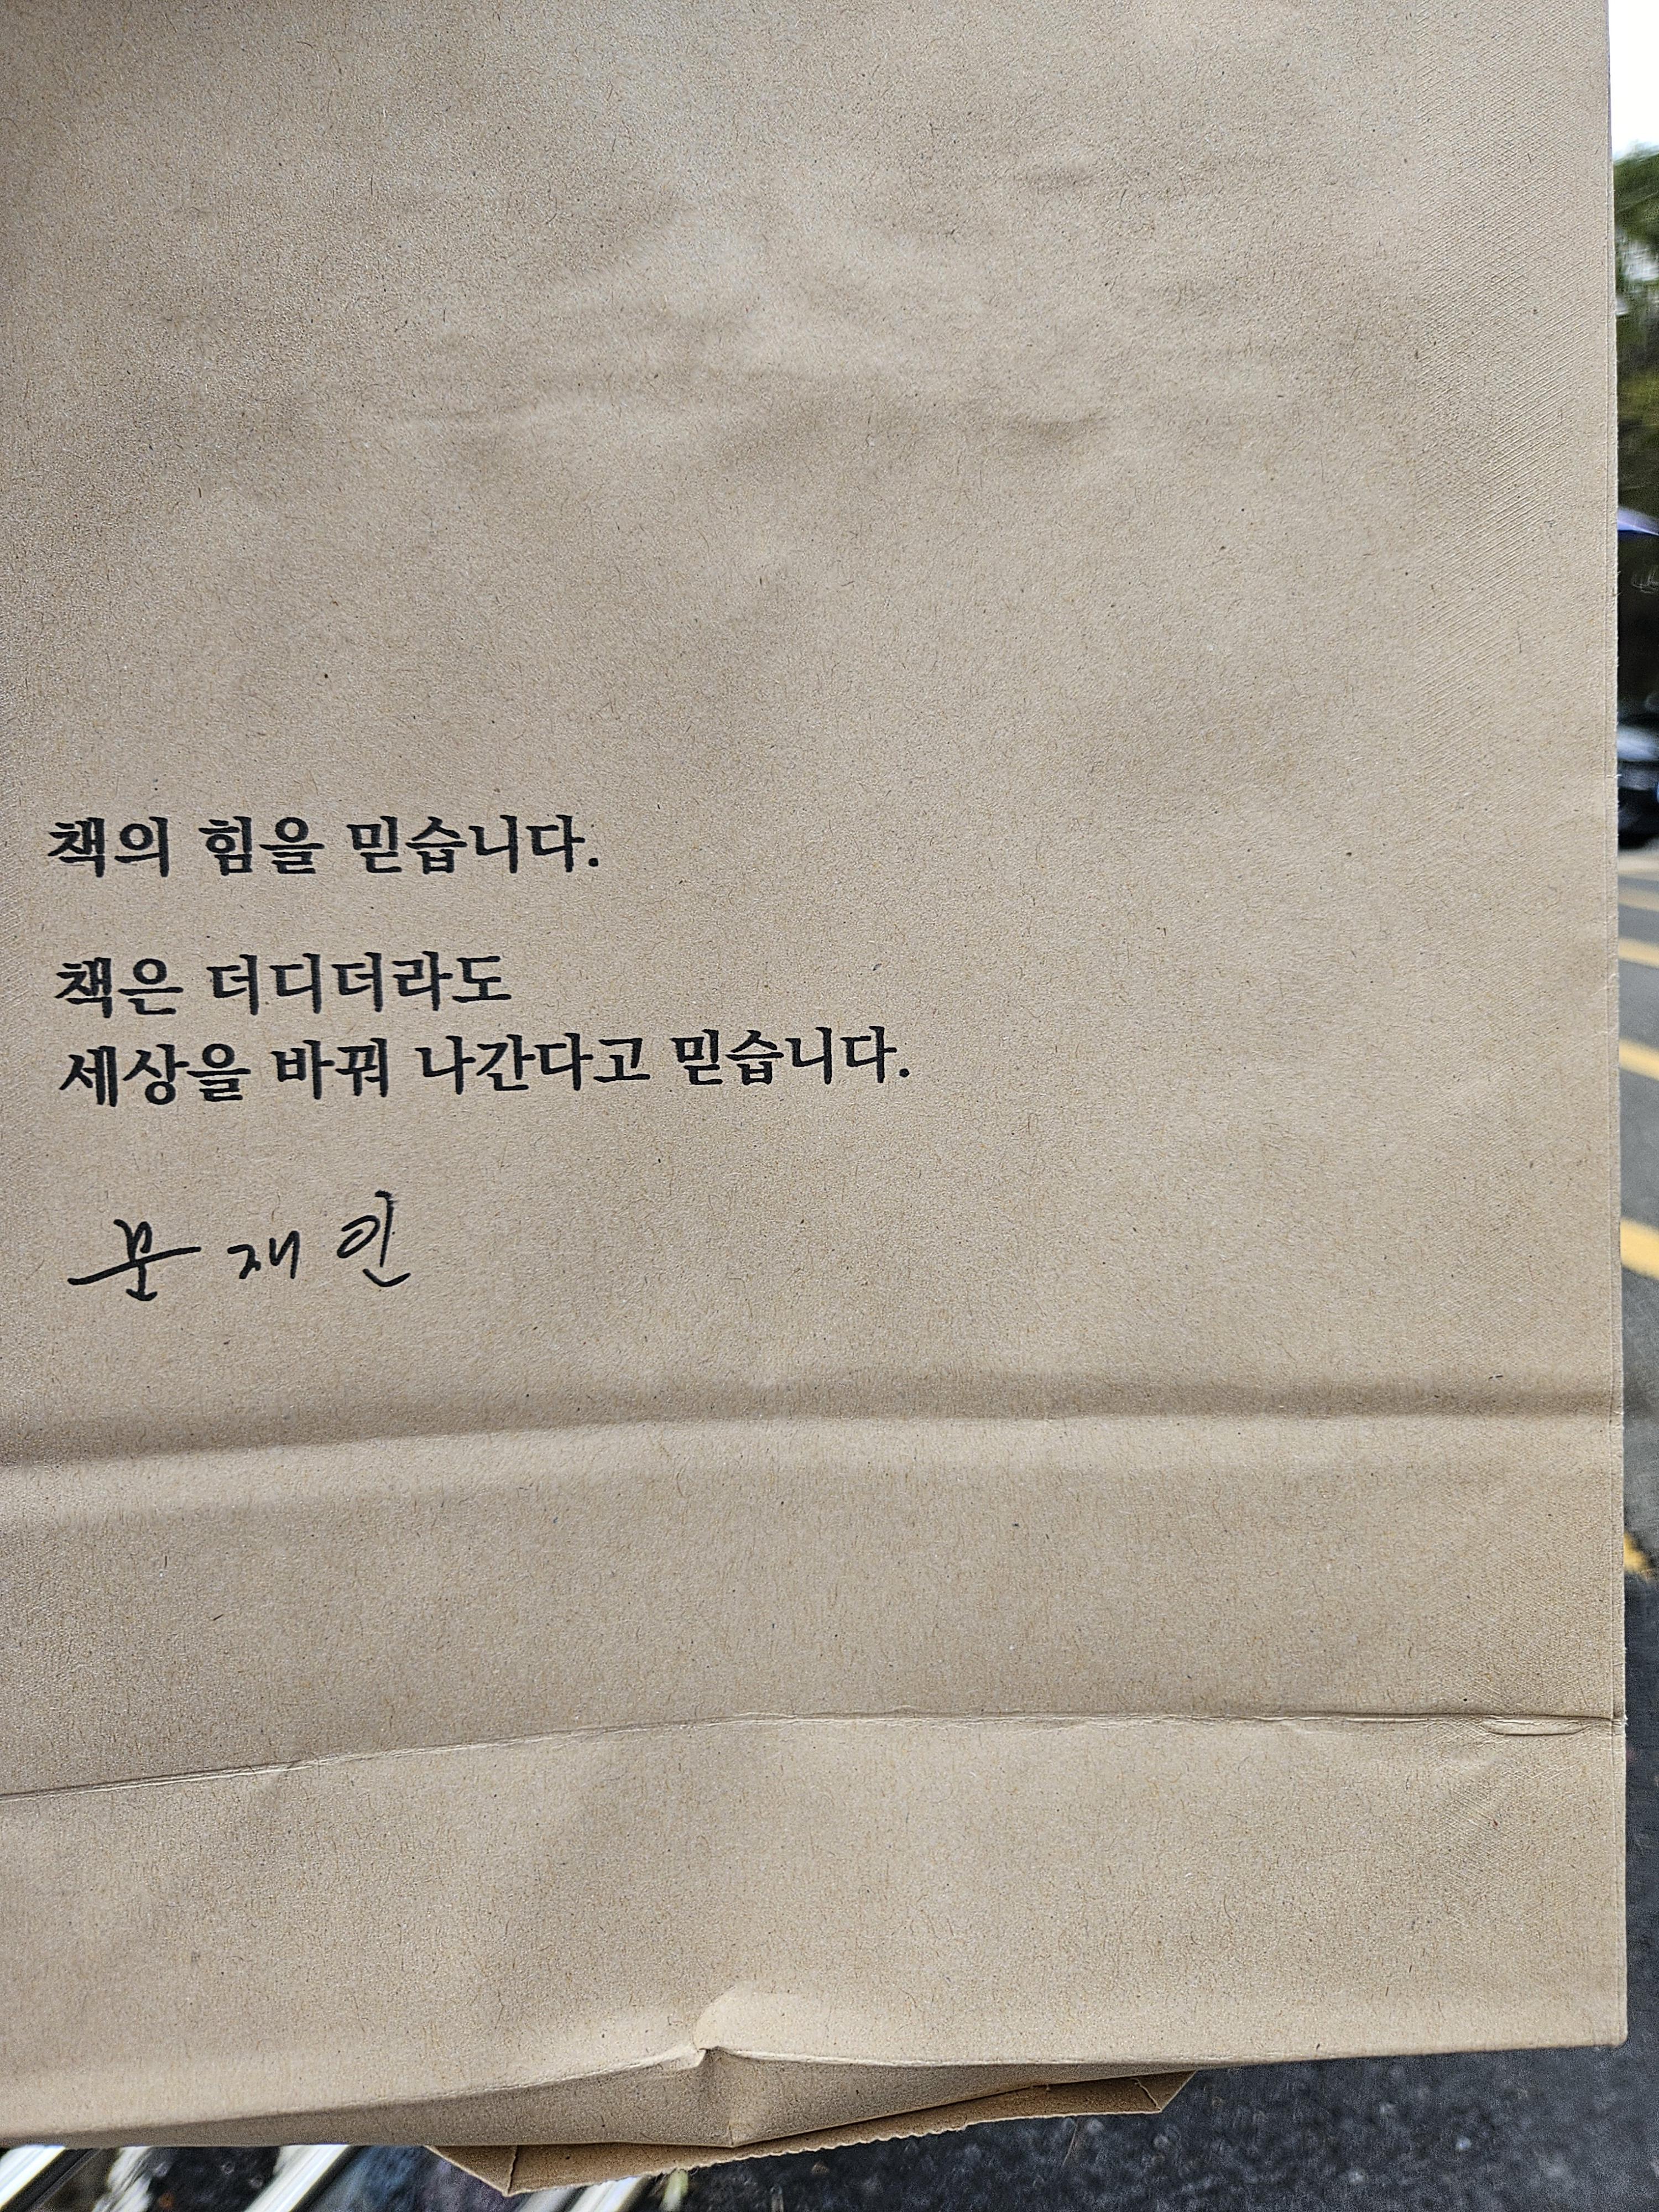 책의 힘을 믿습니다.
책은 더디더라도
세상을 바꿔 나간다고 믿습니다.
문재인